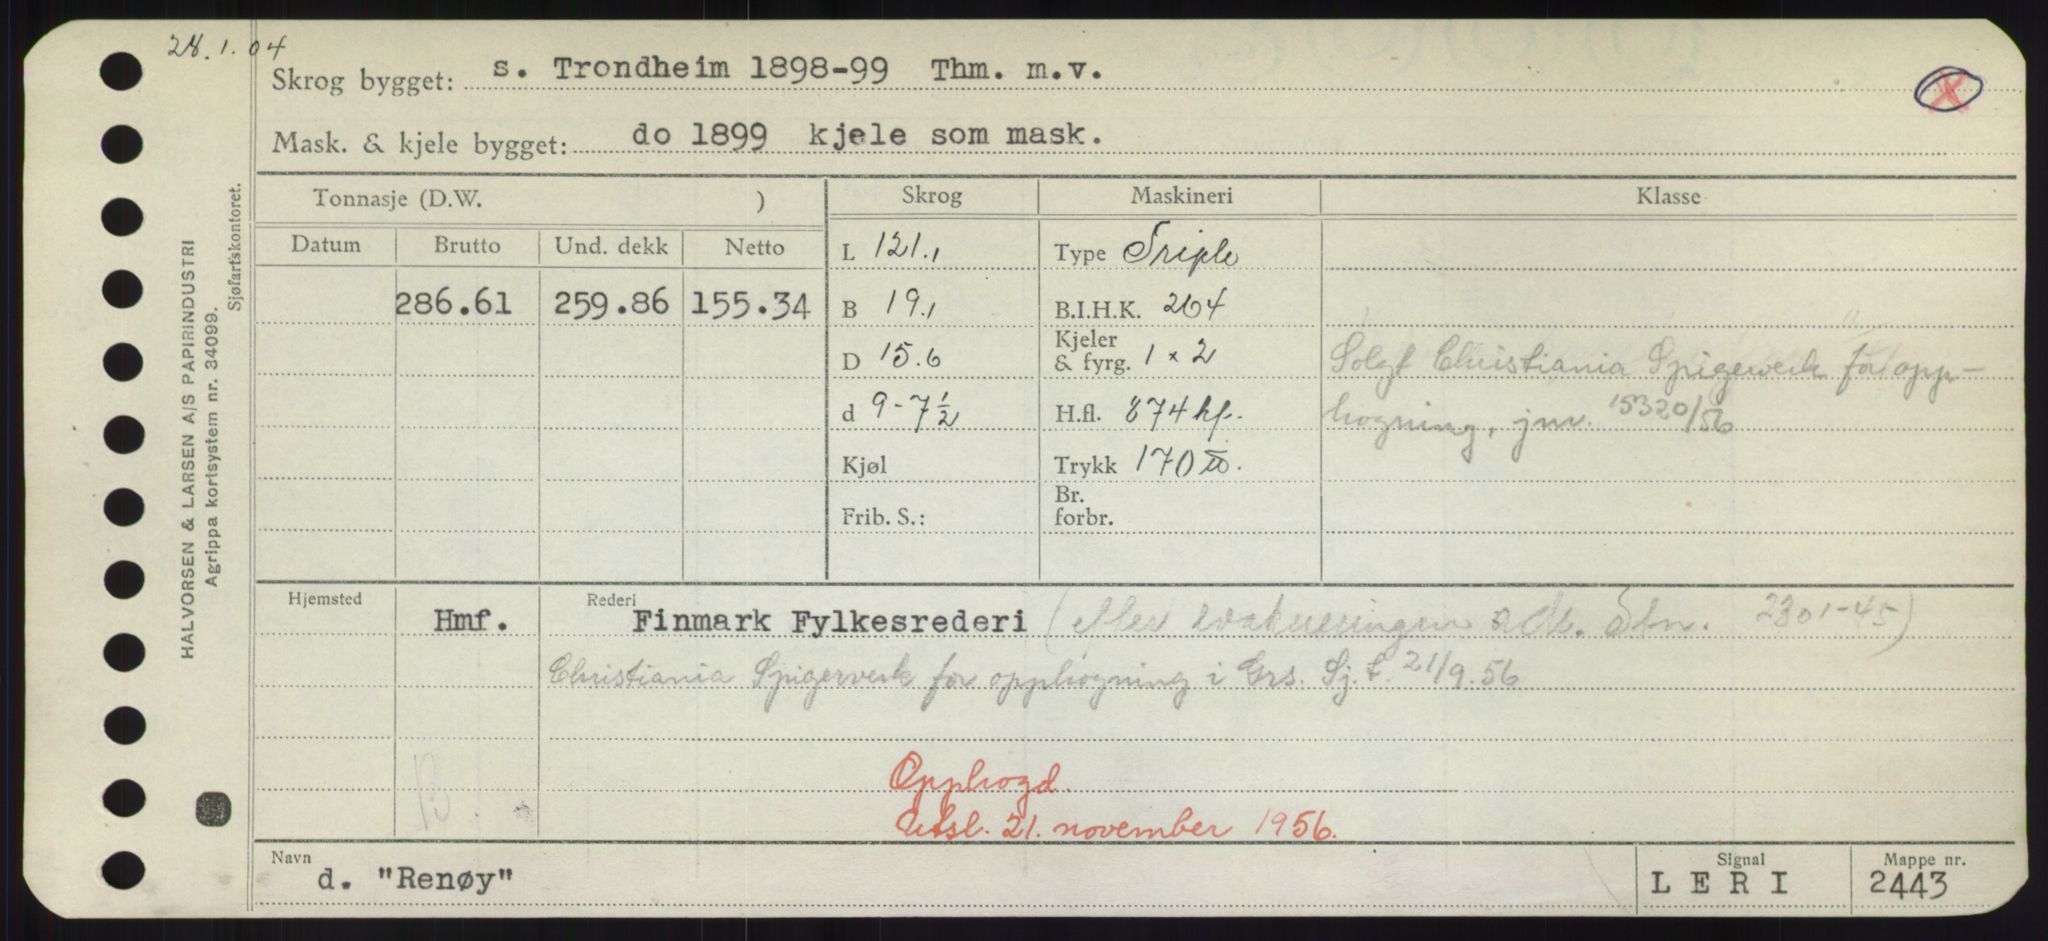 28.1.04
Skrog bygget: s. Trondheim 1898-99 Thm. m.v.
X
Mask. & kjele bygget: do 1899 kjele som mask.
Tonnasje (D.W. ) Skrog Maskineri Klasse
Datum Brutto Und. dekk Netto
286.61 259.86 155.34
L 121,1
B 19,1
D 15.6
d 9-7½
Kjøl
Frib. S.:
Type Triple
B.I.H.K. 264
Kjeler
& fyrg. 1 x 2
H.fl. 874 hf.
Trykk 170
Br.
forbr.
Solgt Christiania Spigerverk for opp-
hogning, jnr. 15320/56
Hjemsted Hmf.
Rederi Finmark Fylkesrederi (etter evakueringen adr. 2301-45)
Christiania Spigerverk for opphogning i Grs. Sj.t. 21/9.56
Opphogd.
Utsl. 21. november 1956.
B.
Navn d. "Renøy"
Signal LERI
Mappe nr. 2443
HALVORSEN & LARSEN A/S PAPIRINDUSTRI
Agrippa kortsystem nr. 34099.
Sjøfartskontoret.